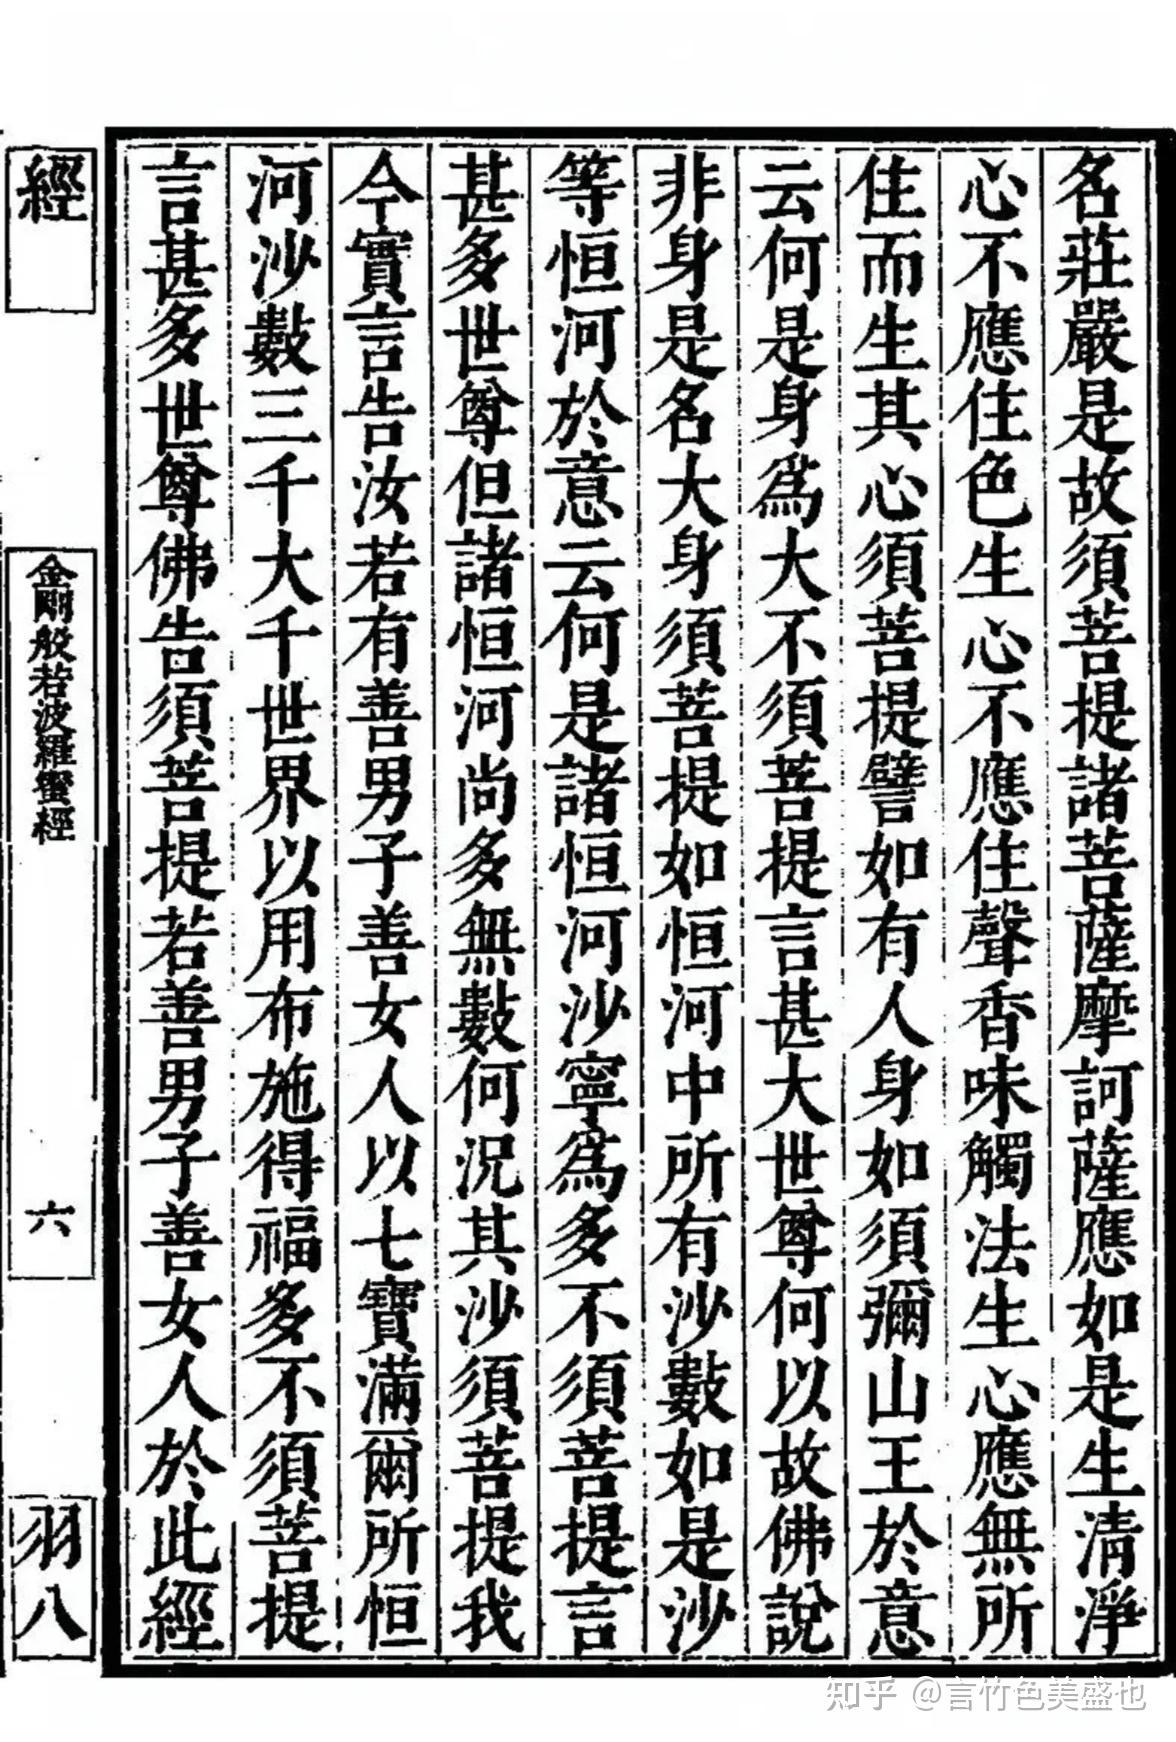 名莊嚴是故須菩提諸菩薩摩訶薩應如是生清淨
心不應住色生心不應住聲香味觸法生心應無所
住而生其心須菩提譬如有人身如須彌山王於意
云何是身爲大不須菩提言甚大世尊何以故佛說
非身是名大身須菩提如恒河中所有沙數如是沙
等恒河於意云何是諸恒河沙寧爲多不須菩提言
甚多世尊但諸恒河尚多無數何況其沙須菩提我
今實言告汝若有善男子善女人以七寶滿爾所恒
河沙數三千大千世界以用布施得福多不須菩提
言甚多世尊佛告須菩提若善男子善女人於此經
經
金剛般若波羅蜜經
六
羽八
知乎 @言竹色美盛也